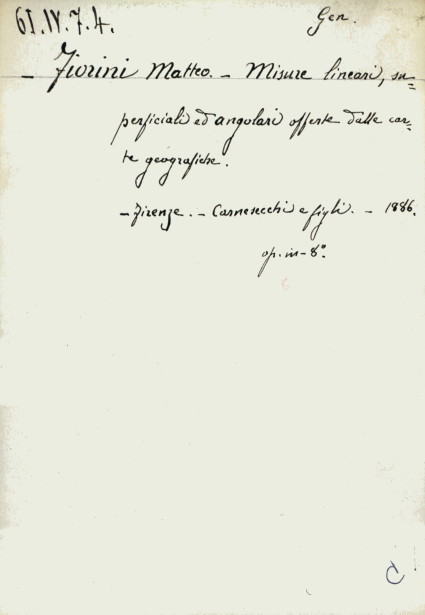 61.IV.7.4.
Gen.
- Fiorini Matteo. - Misure lineari, su=
perficiali ed angolari offerte dalle car=
te geografiche.
- Firenze. - Carnesecchi e figli. - 1886.
op. in-8°.
C